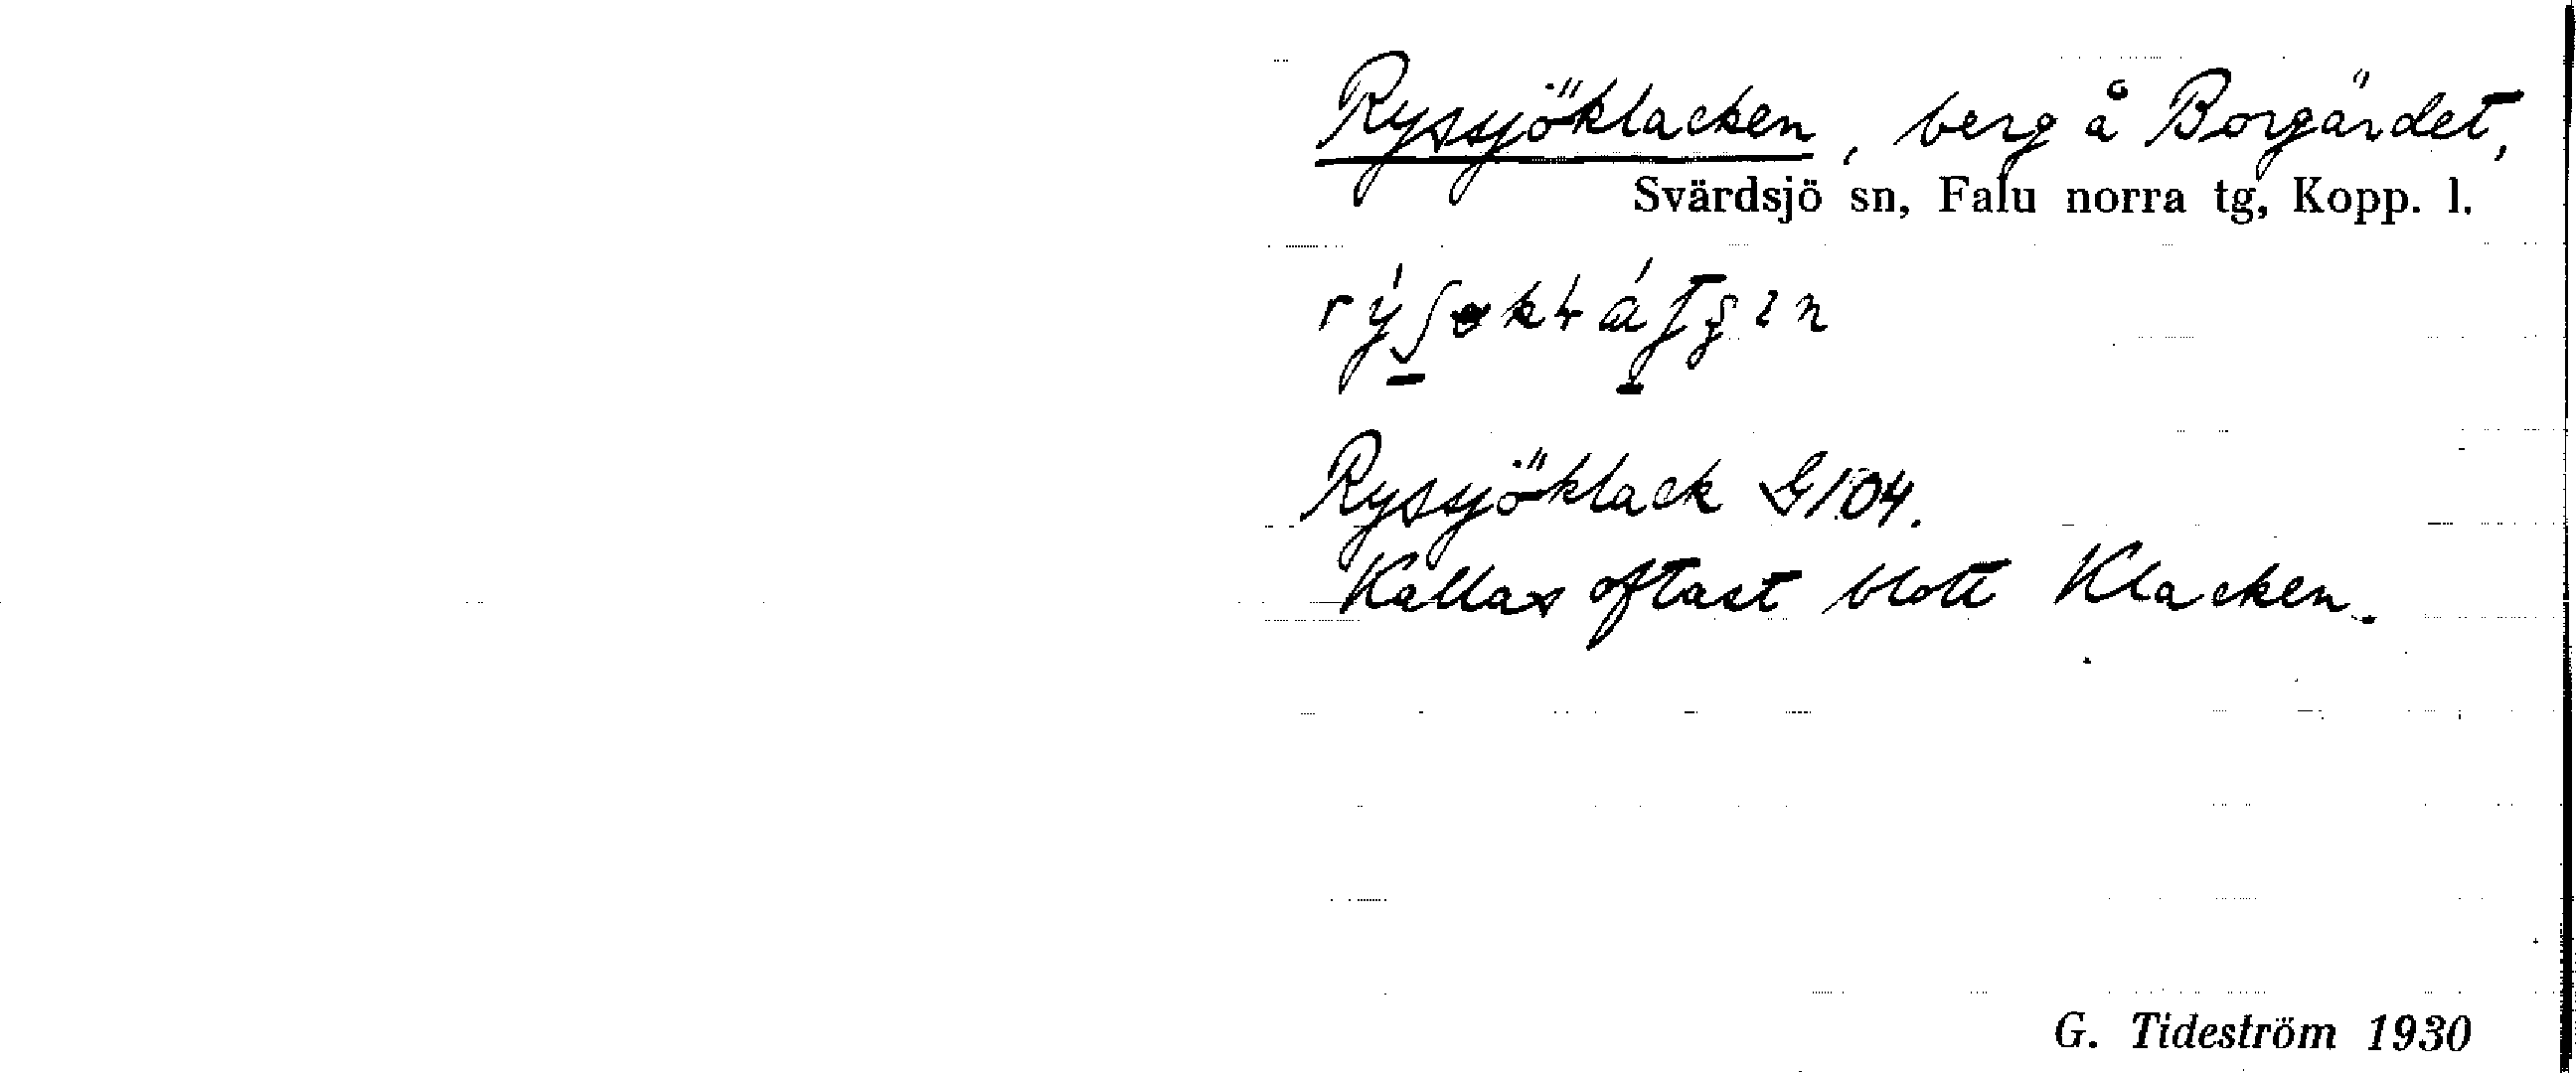 Ryssjöklacken, berg å Borgärdet,
Svärdsjö sn, Falu norra tg, Kopp. l.
Ryssjöklack G104.
Kallas oftast blott Klacken.
G. Tideström 1930